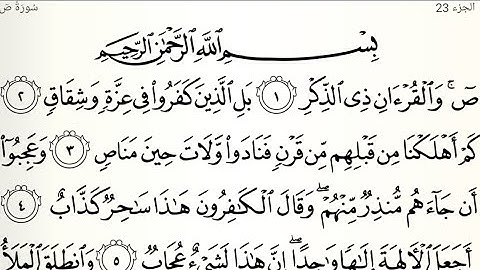 الجزء 23 سورة ص
بِسْمِ ٱللَّهِ ٱلرَّحْمَٰنِ ٱلرَّحِيمِ
صٓ ۚ وَٱلْقُرْءَانِ ذِى ٱلذِّكْرِ ١ بَلِ ٱلَّذِينَ كَفَرُوا۟ فِى عِزَّةٍ وَشِقَاقٍ ٢
كَمْ أَهْلَكْنَا مِن قَبْلِهِم مِّن قَرْنٍ فَنَادَوا۟ وَّلَاتَ حِينَ مَنَاصٍ ٣ وَعَجِبُوٓا۟
أَن جَآءَهُم مُّنذِرٌ مِّنْهُمْ ۖ وَقَالَ ٱلْكَٰفِرُونَ هَٰذَا سَٰحِرٌ كَذَّابٌ ٤
أَجَعَلَ ٱلْءَالِهَةَ إِلَٰهًا وَٰحِدًا ۖ إِنَّ هَٰذَا لَشَىْءٌ عُجَابٌ ٥ وَٱنطَلَقَ ٱلْمَلَأُ